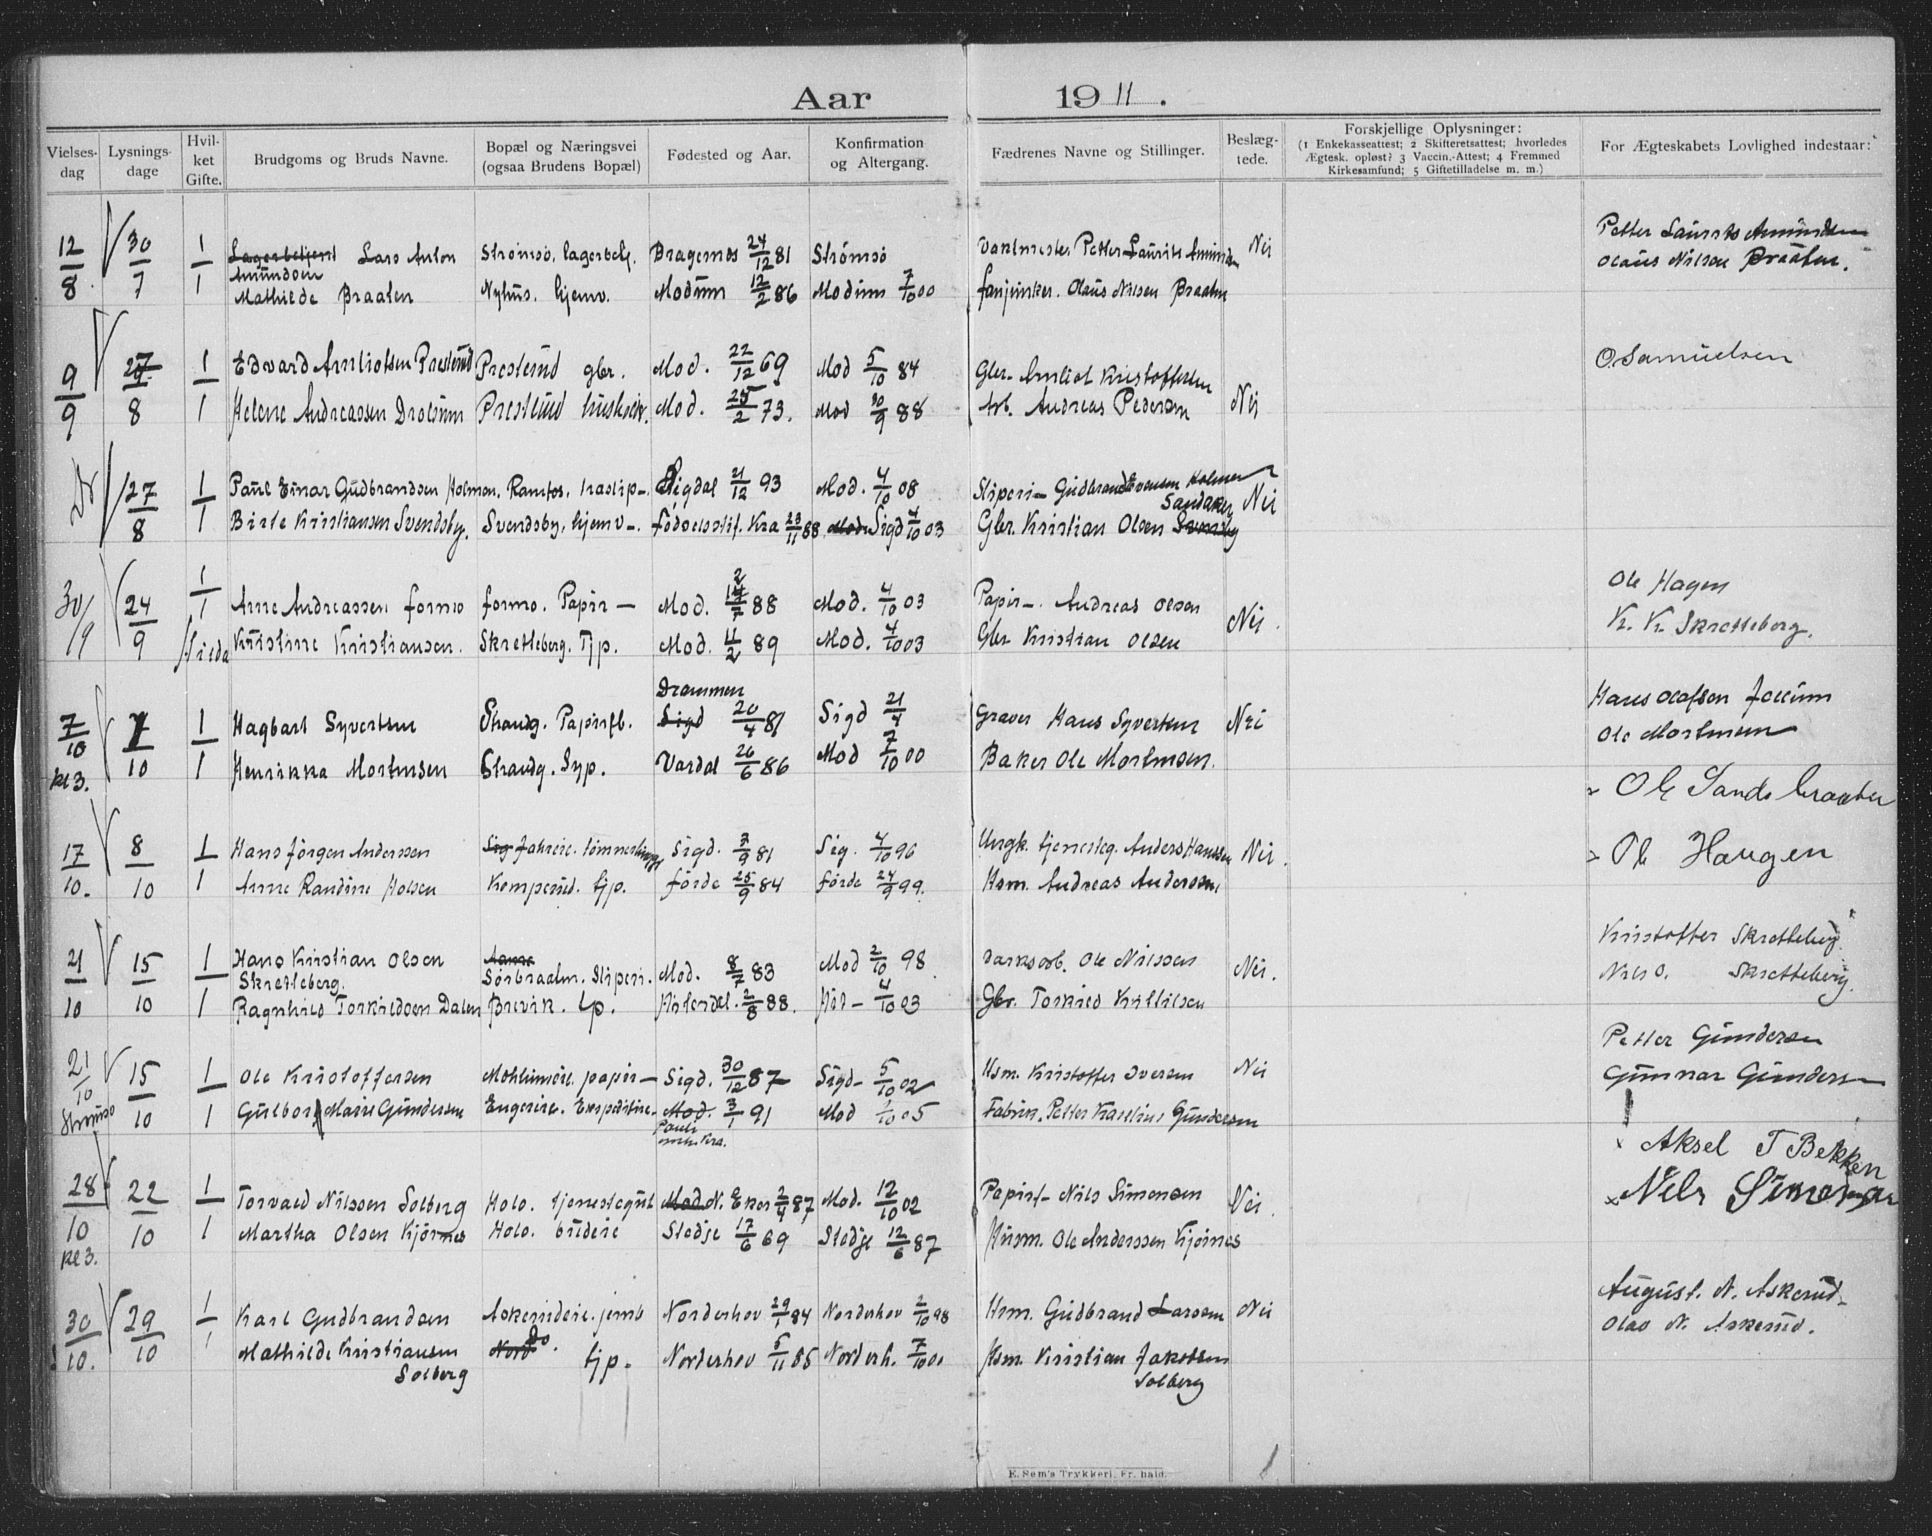 Aar 1911.
Vielses-dag Lysnings-dage Hvil-ket Gifte. Brudgoms og Bruds Navne. Bopæl og Næringsvei (ogsaa Brudens Bopæl) Fødested og Aar. Konfirmation og Altergang. Fædrenes Navne og Stillinger. Beslæg-tede. Forskjellige Oplysninger: (1 Enkekasseattest; 2 Skifteretsattest; hvorledes Ægtesk. opløst? 3 Vaccin.-Attest; 4 Fremmed Kirkesamfund; 5 Giftetilladelse m. m.) For Ægteskabets Lovlighed indestaar:
12/8 30/7 1/1 Lagerbetjent Lars Anton Strømsø, lagerbetj. Bragernes 24/12 81 Strømsø Vaktmester Petter Laurits Amundsen Nei Petter Laurits Amundsen
Amundsen
Mathilde Braaten Nyhus. hjemv. Modum 12/2 86 Modum 7/10 00 Olaus Nilsen Braaten Olaus Nilsen Braaten.
9/9 27/8 1/1 Edvard Arnliotsen Presterud Presterud gbr. Mod. 22/12 69 Mod 5/10 84 Gbr. Arnliot Kristoffersen O Samuelsen
Helene Andreassen Drolsum Presterud Mod. 25/2 73. Mod 30/9 88 Arb. Andreas Pedersen Nei
27/8 1/1 Paul Einar Gudbrandsen Holmen. Ramfos. Sigdal 21/12 93 Mod. 4/10 08 Sliperi- Gudbrand Evensen Holmen Nei
Sandaker
Birte Kristiansen Svendsby. Svendsby, hjemv-. Fødselsstif. Kra 23/11 88 Mod. Sigd 4/10 03 Gbr. Kristian Olsen
30/9 24/9 1/1 Arne Andreassen Formo Formo. Papir- Mod. 2/7 88 Mod. 4/10 03 Papir-. Andreas Olsen Nei. Ole Hagen
Hilda Kristine Kristiansen. Skretteberg. Tjp. Mod. 11/2 89 Mod. 4/10 03 Gbr Kristian Olsen K. K. Skretteberg.
Drammen
7/10 1/10 1/1 Hagbart Syvertsen Strandg. Papirfb. Sigd 20/4 81 Sigd 21/4 Graver Hans Syvertsen Nei Hans Olafsen
kl 3. Henrikka Mortensen Strandg. Syp. Vardal 26/6 86 Mod 7/10 00 Baker Ole Mortensen. Ole Mortensen
Ole Sandsbraaten
17/10. 8/10 1/1 Hans Jørgen Anderssen Sigd. 3/9 81 Sig. 4/10 96 Ungk. tjenesteg. Anders Hanssen Nei. Ole Haugen
Anne Randine Holsen Komperud. tjp. Førde 25/9 84 Førde 24/9 99. Hsm. Andreas Anderssen
21/10 15/10 1/1 Hans Kristian Olsen Sørbraaten. Sliperi. Mod. 8/7 83 Mod 2/10 98 Ole Nilssen Nei. Kristoffer Skretteberg
Skretteberg.
Ragnhild Torkildsen Dalen Brevik. tp. Hiterdal. 2/8 88. Hit- 4/10 03 Gbr. Torkild Kittilsen Nils O. Skretteberg.
21/10 15/10 1/1 Ole Kristoffersen papir- Sigd. 30/12 87 Sigd- 5/10 02 Hsm. Kristoffer Iversen Nei Petter Gundersen
Strømsø Gulborg Marie Gundersen Engerire. Expeditrice- Mod. 3/1 91 Mod 1/10 05 Fabrik. Petter Karelius Gundersen Gunnar Gundersen
Aksel T Bekken
28/10 22/10 1/1 Torvald Nilssen Solberg Holo. tjenestegut Mod. N. Eker 2/4 87 Mod. 12/10 02 Papirf- Nils Simensen Nei. Nils Simensen
kl 3. Martha Olsen Kjørnes Holo. budeie Stedje 17/6 69 Stedje 12/6 87 Husm. Ole Anderssen Kjørnes
30/10. 29/10 1/1 Karl Gudbrandsen Askerudeie. jernb Norderhov 29/1 84 Norderhov 2/10 98 Hsm. Gudbrand Larssen Nei August. N. Askerud-
Mathilde Kristiansen Do. tjp. Norderhov 5/11 85 Norderh. 7/10 00 Hsm. Kristian Jakobsen Olao N. Askerud.
Solberg Solberg
E. Sem's Trykkeri, Fr. hald.